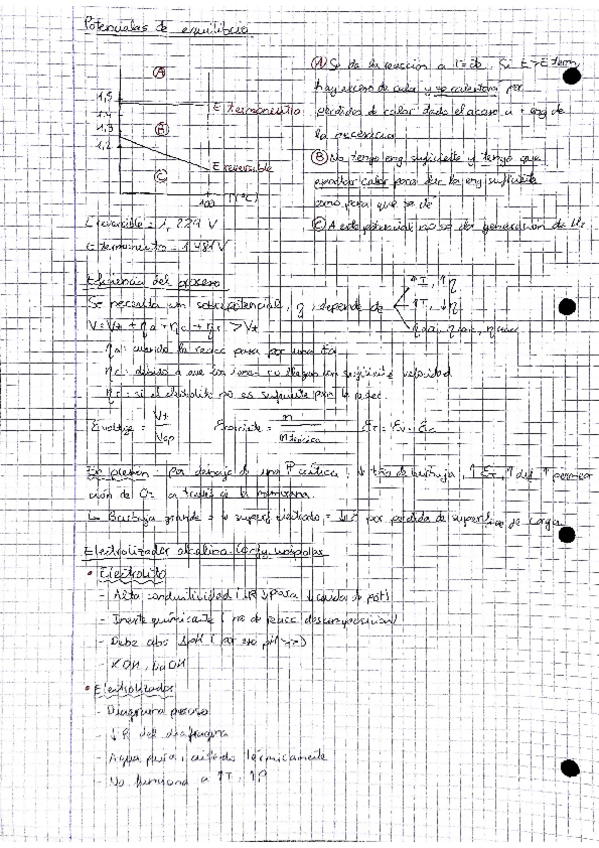 Potenciales de equilibrio
Ⓐ Se da la reacción a T=cte, Si E>E term
hay exceso de calor y se calienta por
pérdidas de calor dado el exceso de eng de
la
Ⓑ No tengo eng suficiente y tengo que
aportar calor para dar la eng suficiente
como para que se dé
Ⓒ A este potencial no se da generación de H₂
Ⓐ
1,5
1,4
1,3
1,2
E termoneutro
Ⓑ
E reversible
Ⓒ
100 T(ºC)
E reversible = 1,229 V
E termoneutro = 1,481 V
Eficiencia del proceso
Se necesita un sobrepotencial, η, depende de
↑T, ↑η
↑T, ↓η
V = Vt + ηa + ηc + ηr > Vt
ηa: cuando la reacc pasa por una Ea
ηc: debido a que los iones no llegan con suficiente velocidad
ηr: si el electrolito no es suficiente para la reacc.
Evoltaje = Vt / Vop
n / n teórica
ET = Ev ·
presión: Por debajo de una P crítica, ↓ tño de burbuja, ↑ ↑ dif ↑ permea
ción de O₂ a través de la membrana.
↳ Burbuja grande = ↓ superf electrodo, = por pérdida de superficie de carga
Electrolizador alcalino
• Electrolito
- Alta conductividad (↓R) para ↓ caída de pot)
- Inerte (no de reacc descomposición)
- Debe ↓pH (por eso pH>>7)
- KOH, NaOH
• Electrolizador
- Diagrama proceso
- ↓R del diafragma
- Agua pura, térmicamente
- No funciona a ↑T, ↑P